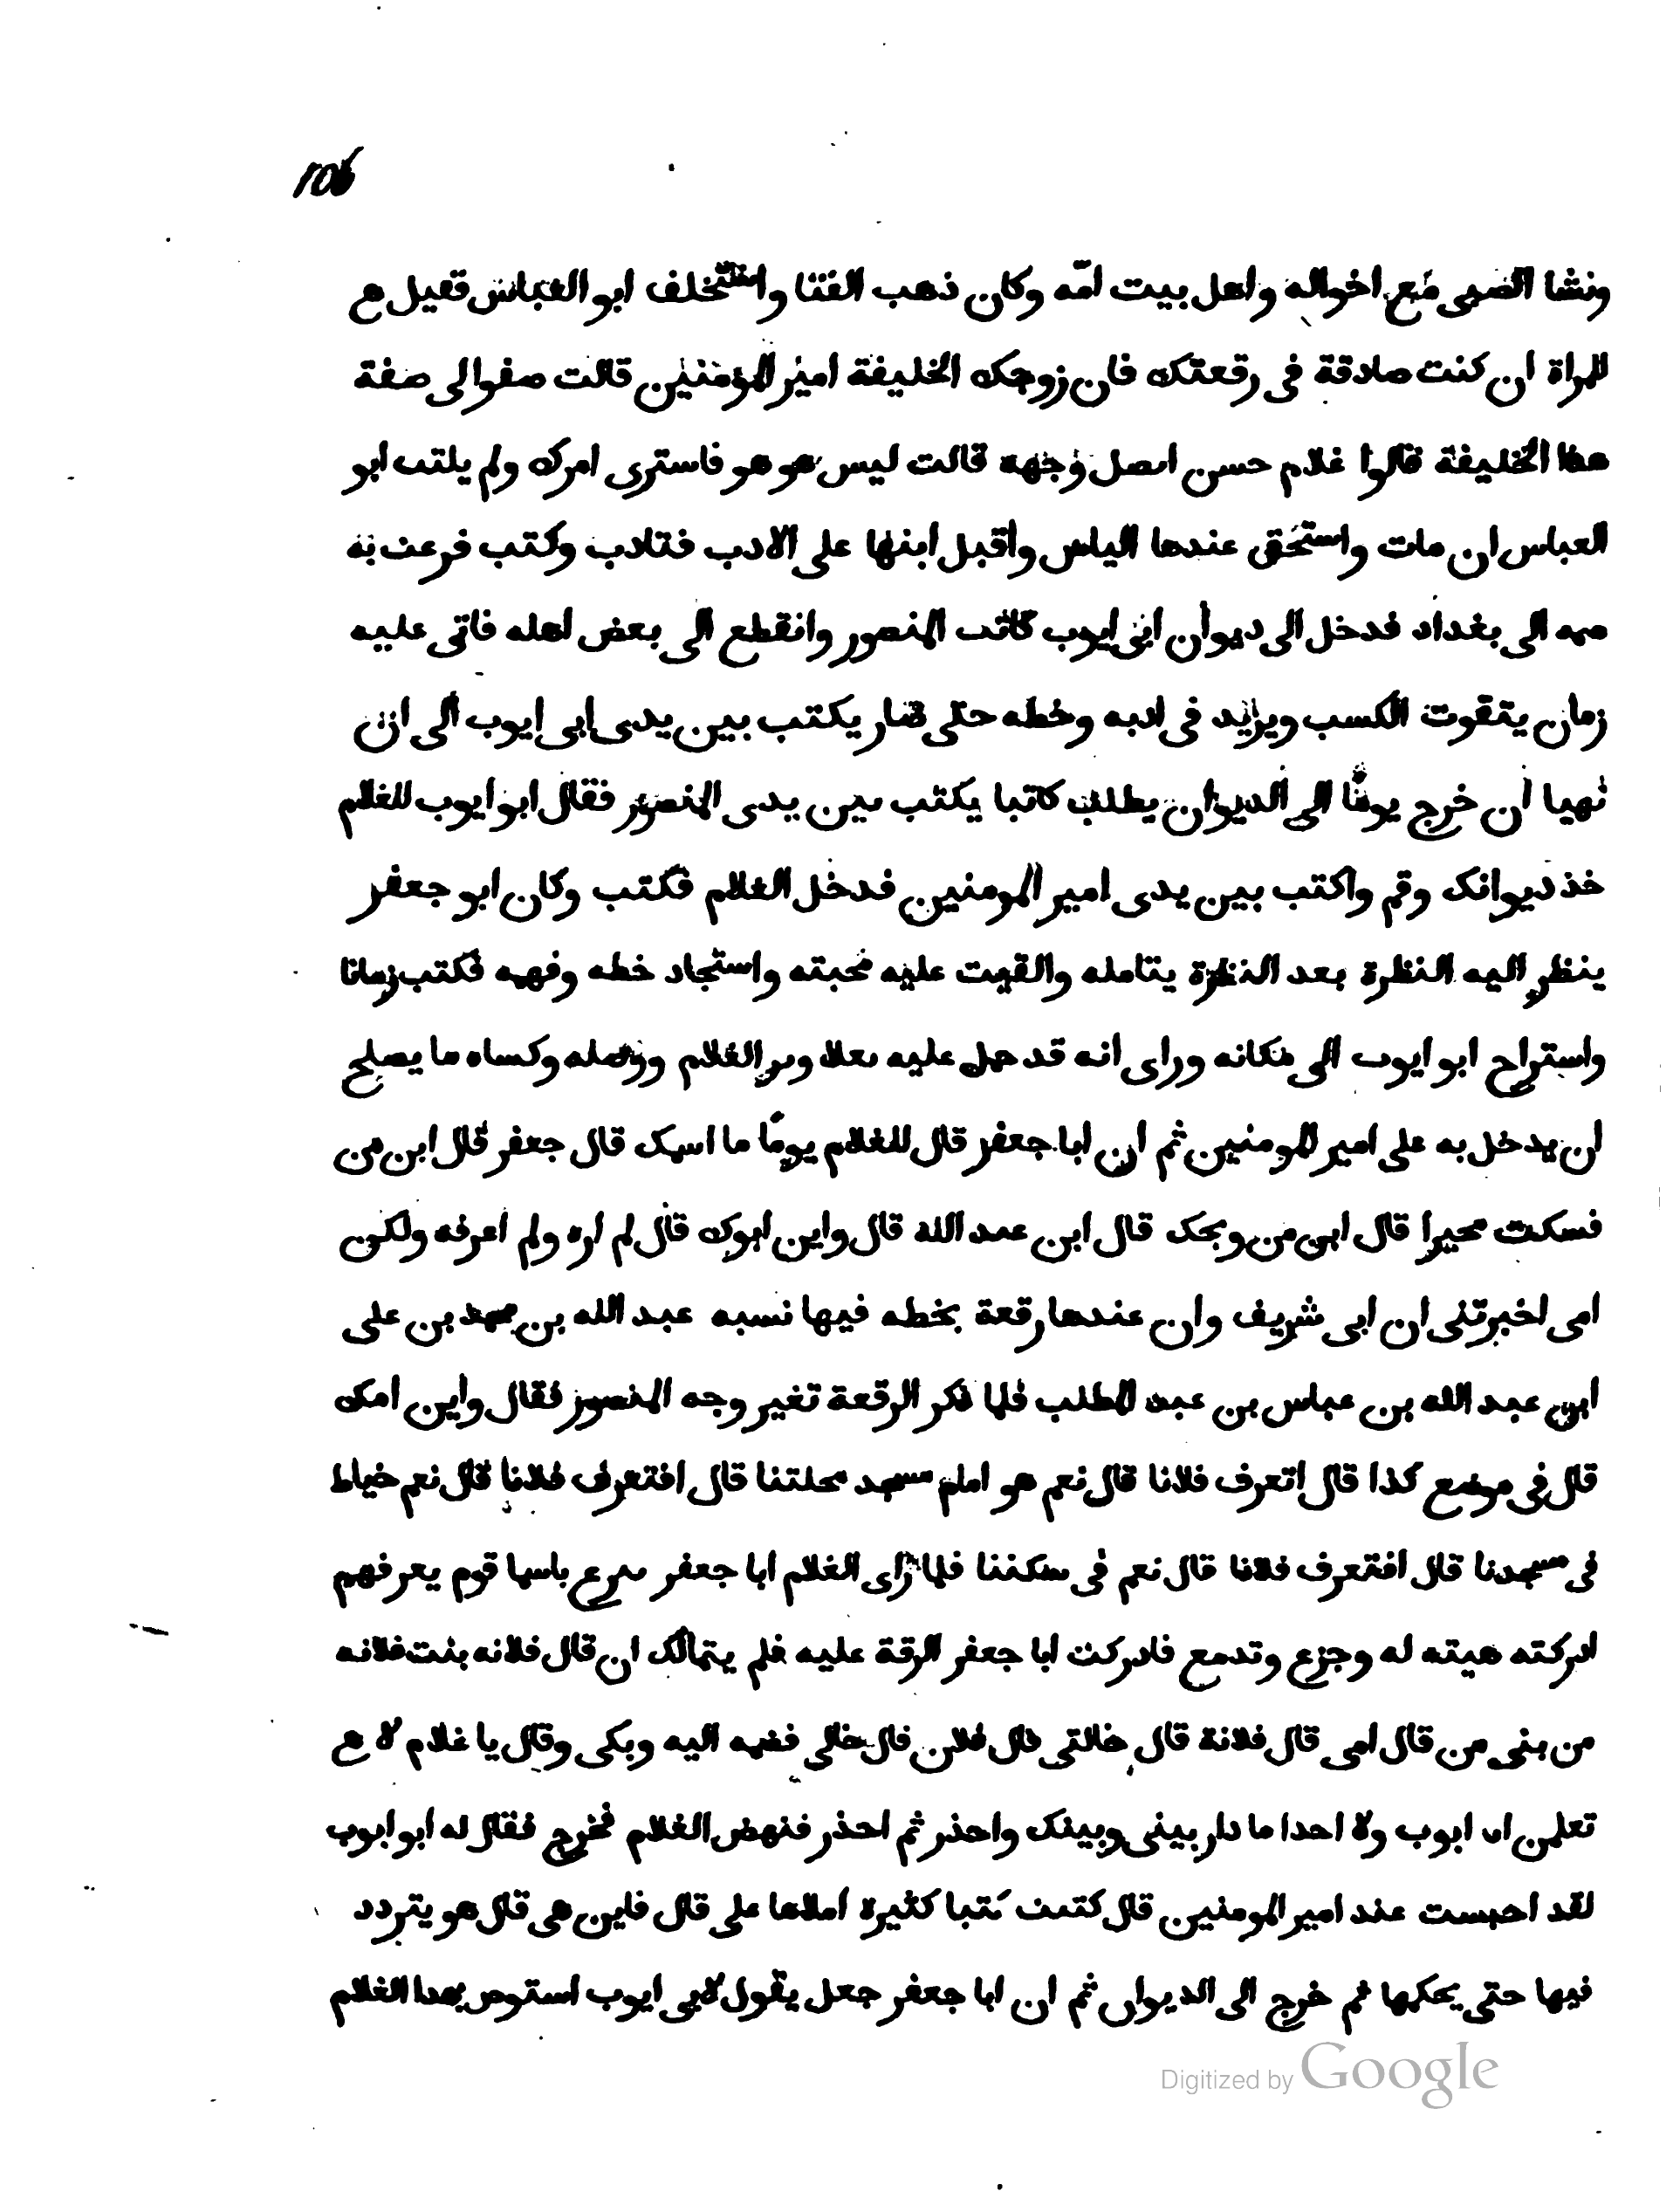 106
ونشا الصبى مع اخواله واهل بيت امّه وكان ذهب الفتنا واستخلف ابو العباس فقيل ع
للمراة ان كنت صادقة فى رقعتك فان زوجك الخليفة امير المؤمنين قالت صفوا لى صفة
هذا الخليفة قالوا غلام حسن اتصل وجهه قالت ليس هو هو فاسترى امرك ولم يلتب ابو
العباس ان مات واستحق عندها الياس واقبل ابنها على الادب فتادب وكتب فرعت به
همه الى بغداد فدخل الى ديوان ابى ايوب كاتب المنصور وانقطع الى بعض اهله فاتى عليه
زمان يتقوت الكسب ويزيد فى ادبه وخطه حتى صار يكتب بين يدى ابى ايوب الى ان
تهيا ان خرج يومًا الى الديوان يطلب كاتبا يكتب بين يدى المنصور فقال ابو ايوب للغلام
خذ ديوانك وقم واكتب بين يدى امير المومنين فدخل الغلام فكتب وكان ابو جعفر
ينظر اليه النظرة بعد النظرة يتامله والقيت عليه محبته واستجاد خطه وفهمه فكتب زمانا
واستراح ابو ايوب الى مكانه وراى انه قد حمل عليه ثقلا وبر الغلام ووصله وكساه ما يصلح
ان يدخل به على امير المومنين ثم ان ابا جعفر قال للغلام يومًا ما اسمك قال جعفر قال ابن من
فسكت محيرا قال ابن من ويحك قال ابن عبد الله قال واين ابوك قال لم اره ولم اعرفه ولكن
امى اخبرتنى ان ابى شريف وان عندها رقعة بخطه فيها نسبه عبد الله بن محمد بن على
ابن عبد الله بن عباس بن عبد المطلب فلما ذكر الرقعة تغير وجه المنصور فقال واين امك
قال فى موضع كذا قال اتعرف فلانا قال نعم هو امام مسجد محلتنا قال افتعرف فلانا قال نعم خياط
فى مسجدنا قال افتعرف فلانا قال نعم فى سكننا فلما راى الغلام ابا جعفر يبرع باسما قوم يعرفهم
ادركته هيته له وجزع وتدمع فادركت ابا جعفر الرقة عليه فلم يتمالك ان قال فلانه بنت فلانه
من بنى من قال امى قال فلانة قال خالتى قال فلان قال خالى فضمه اليه وبكى وقال يا غلام لا ع
تعلمن ابا ايوب ولا احدا ما دار بينى وبينك واحذر ثم احذر فنهض الغلام فخرج فقال له ابو ايوب
لقد احبست عند امير المومنين قال كتبت كتبا كثيرة املاها على قال فاين هى قال هو يتردد
فيها حتى يحكمها ثم خرج الى الديوان ثم ان ابا جعفر جعل يقول لابى ايوب استوص بهدا الغلام
Digitized by Google